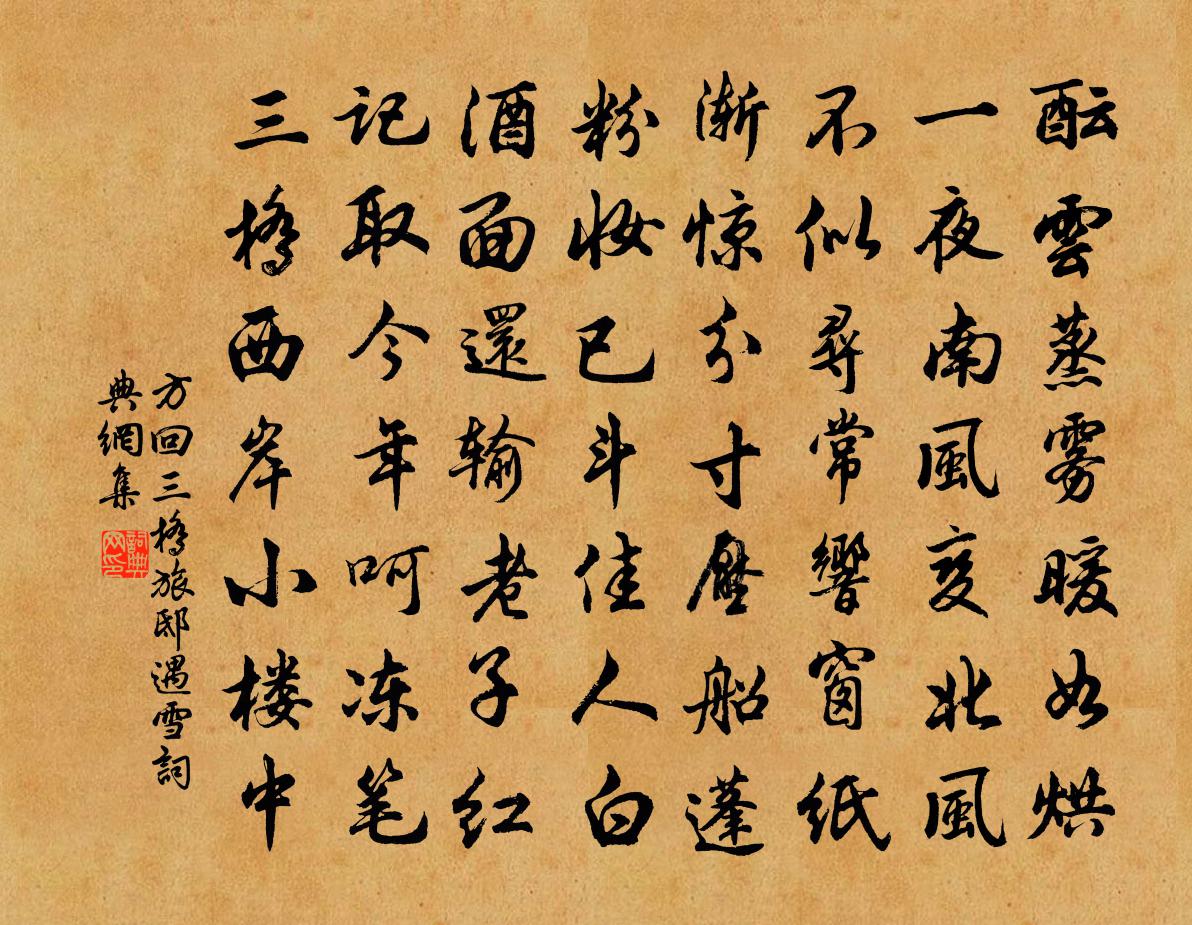 酝雲蒸雾暖如烘
一夜南風变北風
不似尋常響窗纸
渐惊分寸壓船蓬
粉妆已斗佳人白
酒面還输老子红
记取今年呵冻笔
三橋西岸小楼中
方回三橋旅邸遇雪詞
典網集
詞典
网印